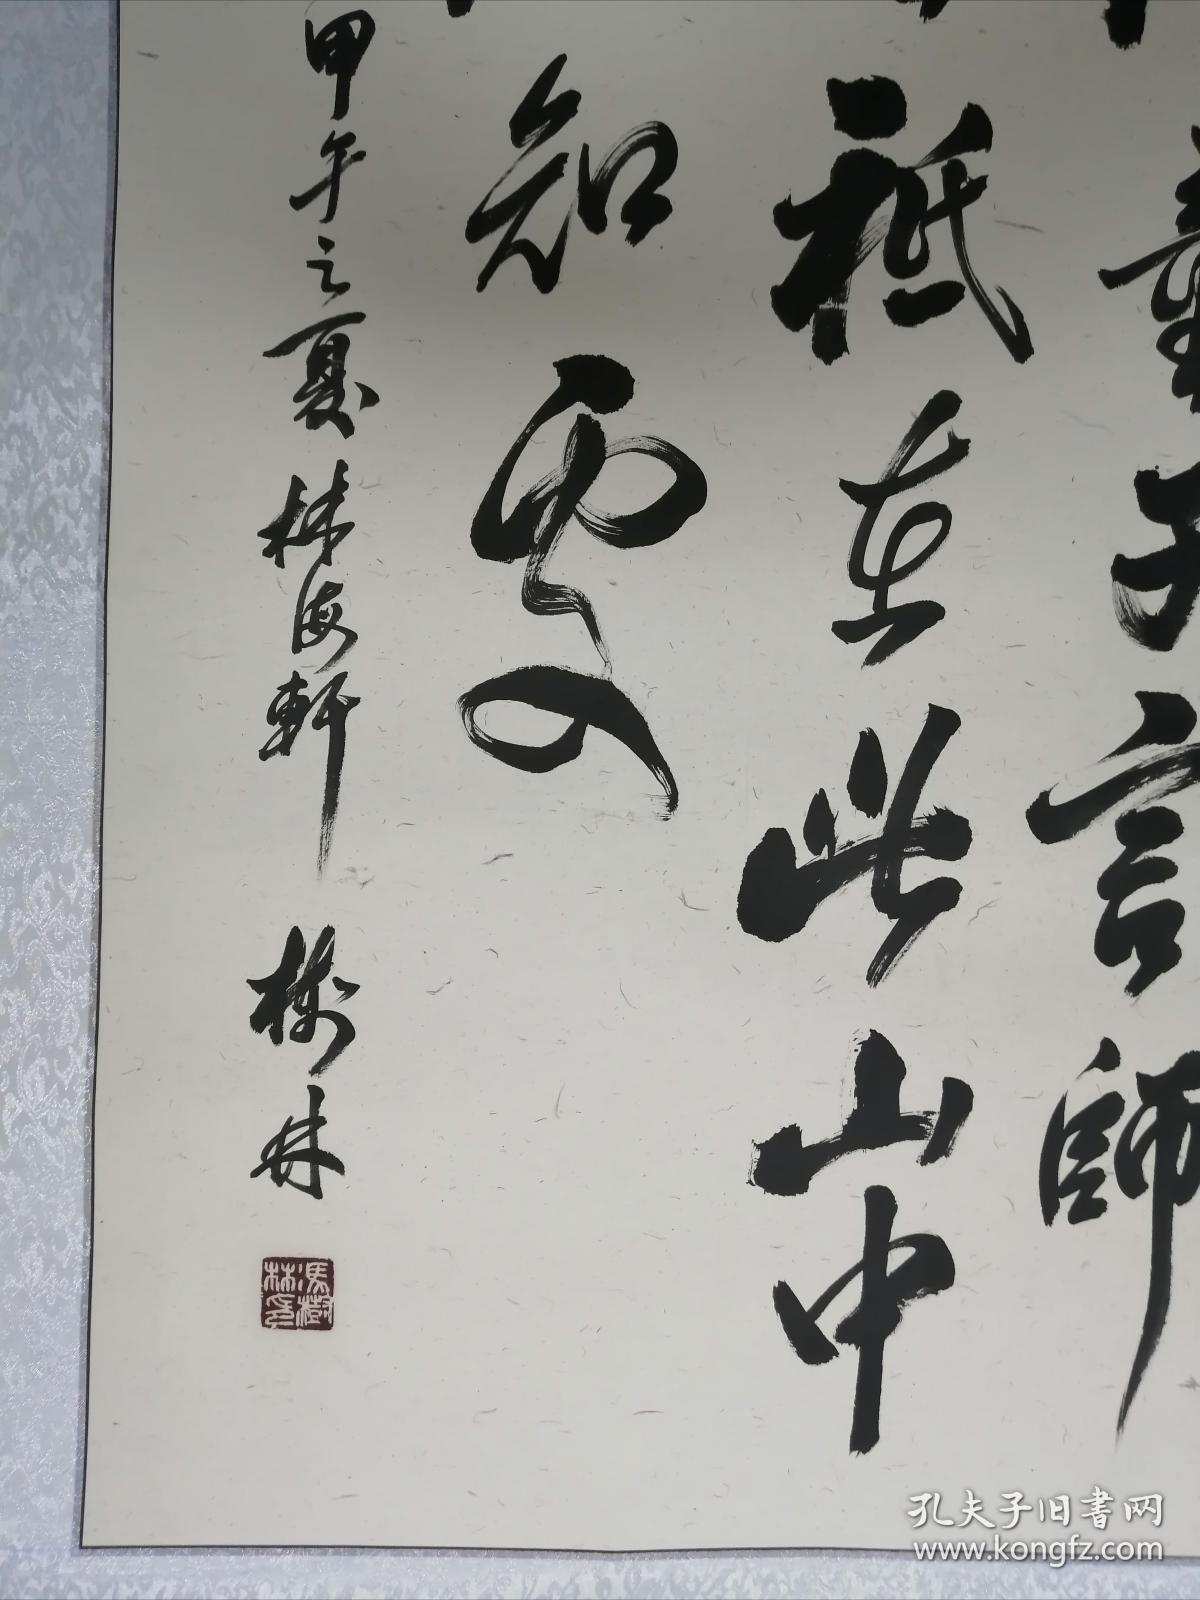 童子言師
祗在此山中
知處
甲午之夏林海軒 樹林
馮樹林印
孔夫子旧書网
www.kongfz.com